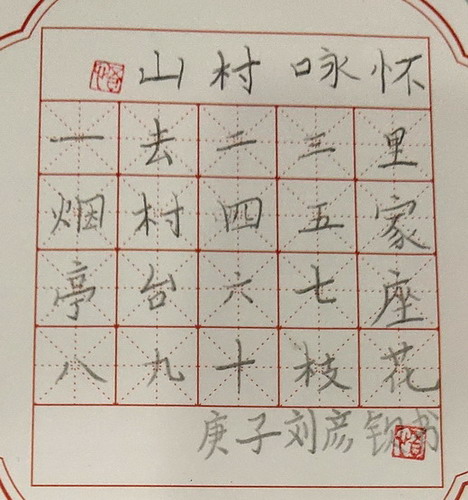 山村咏怀
一去二三里
烟村四五家
亭台六七座
八九十枝花
庚子刘彦钦书